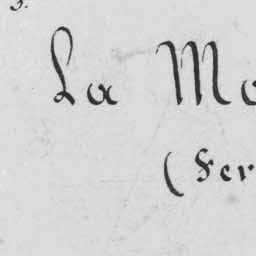 La Mo
(Fer